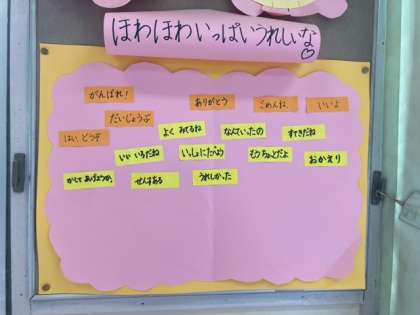 ほわほわいっぱいうれしいな♡
がんばれ!
ありがとう
ごめんね
いいよ
だいじょうぶ
はい、どうぞ
よくみてるね
なんていったの
すてきだね
いいいろだね
いっしょにたべよう
もうちょっとだよ
おかえり
かしてあげようか。
せんすある
うれしかった